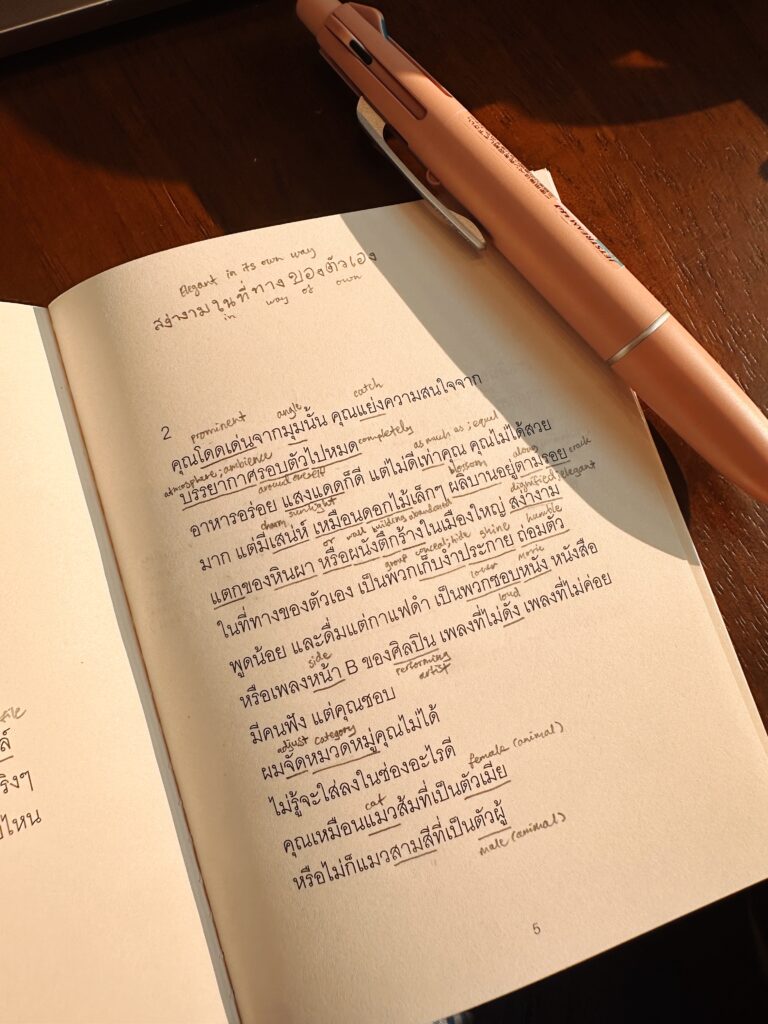 Elegant in its own way
สง่างาม ใน ที่ ทาง ของ ตัวเอง
in way of own
2
prominent angle catch
คุณโดดเด่นจากมุมนั้น คุณแย่งความสนใจจาก
atmosphere; ambience around oneself completely
บรรยากาศรอบตัวไปหมด
sunlight as much as; equal
อาหารอร่อย แสงแดดก็ดี แต่ไม่ดีเท่าคุณ คุณไม่ได้สวย
charm blossom along crack
มาก แต่มีเสน่ห์ เหมือนดอกไม้เล็กๆ ผลิบานอยู่ตามรอย
or wall building abandoned dignified; elegant
แตกของหินผา หรือผนังตึกร้างในเมืองใหญ่ สง่างาม
group conceal; hide shine humble
ในที่ทางของตัวเอง เป็นพวกเก็บงำประกาย ถ่อมตัว
lover movie
พูดน้อย และดื่มแต่กาแฟดำ เป็นพวกชอบหนัง หนังสือ
side performing artist loud
หรือเพลงหน้า B ของศิลปิน เพลงที่ไม่ดัง เพลงที่ไม่ค่อย
มีคนฟัง แต่คุณชอบ
adjust category
ผมจัดหมวดหมู่คุณไม่ได้
ไม่รู้จะใส่ลงในช่องอะไรดี
cat female (animal)
คุณเหมือนแมวส้มที่เป็นตัวเมีย
หรือไม่ก็แมวสามสีที่เป็นตัวผู้
male (animal)
5
JETSTREAM 4&1